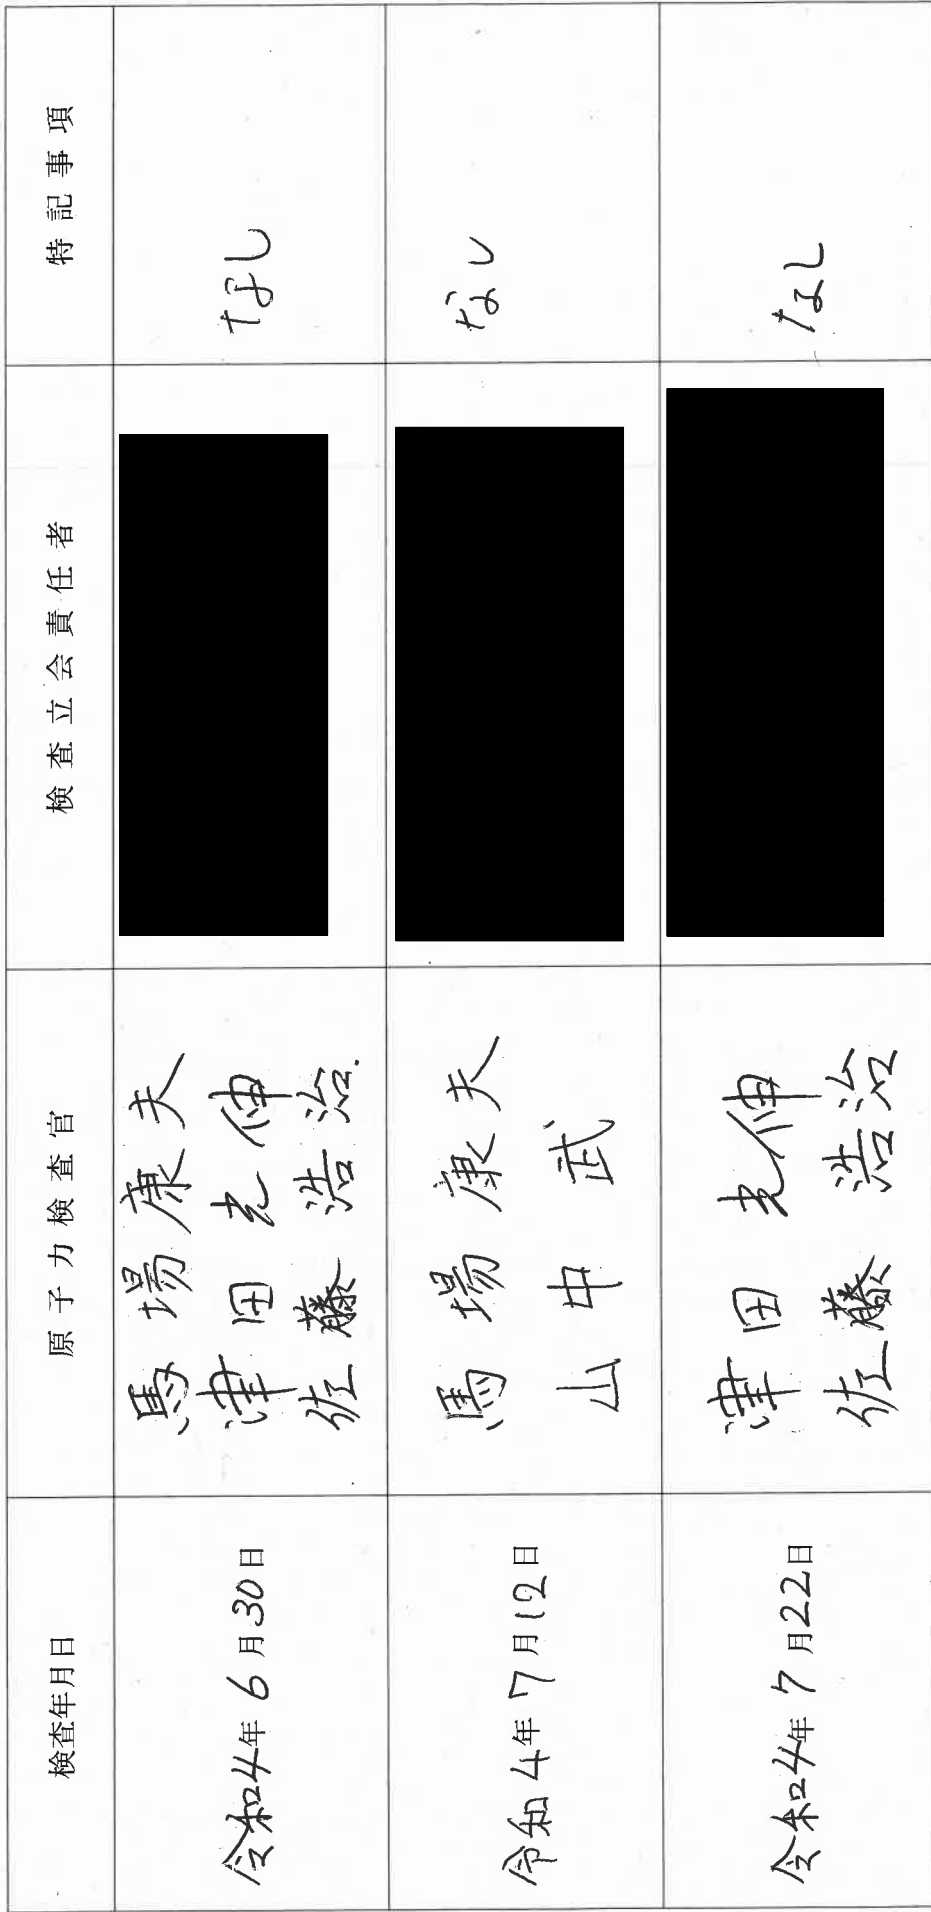 検査年月日
原子力検査官
検査立会責任者
特記事項
令和4年6月30日
馬場康夫
津田光伸
佐藤浩治
なし
令和4年7月12日
馬場康夫
山中武
なし
令和4年7月22日
津田光伸
佐藤浩治
なし